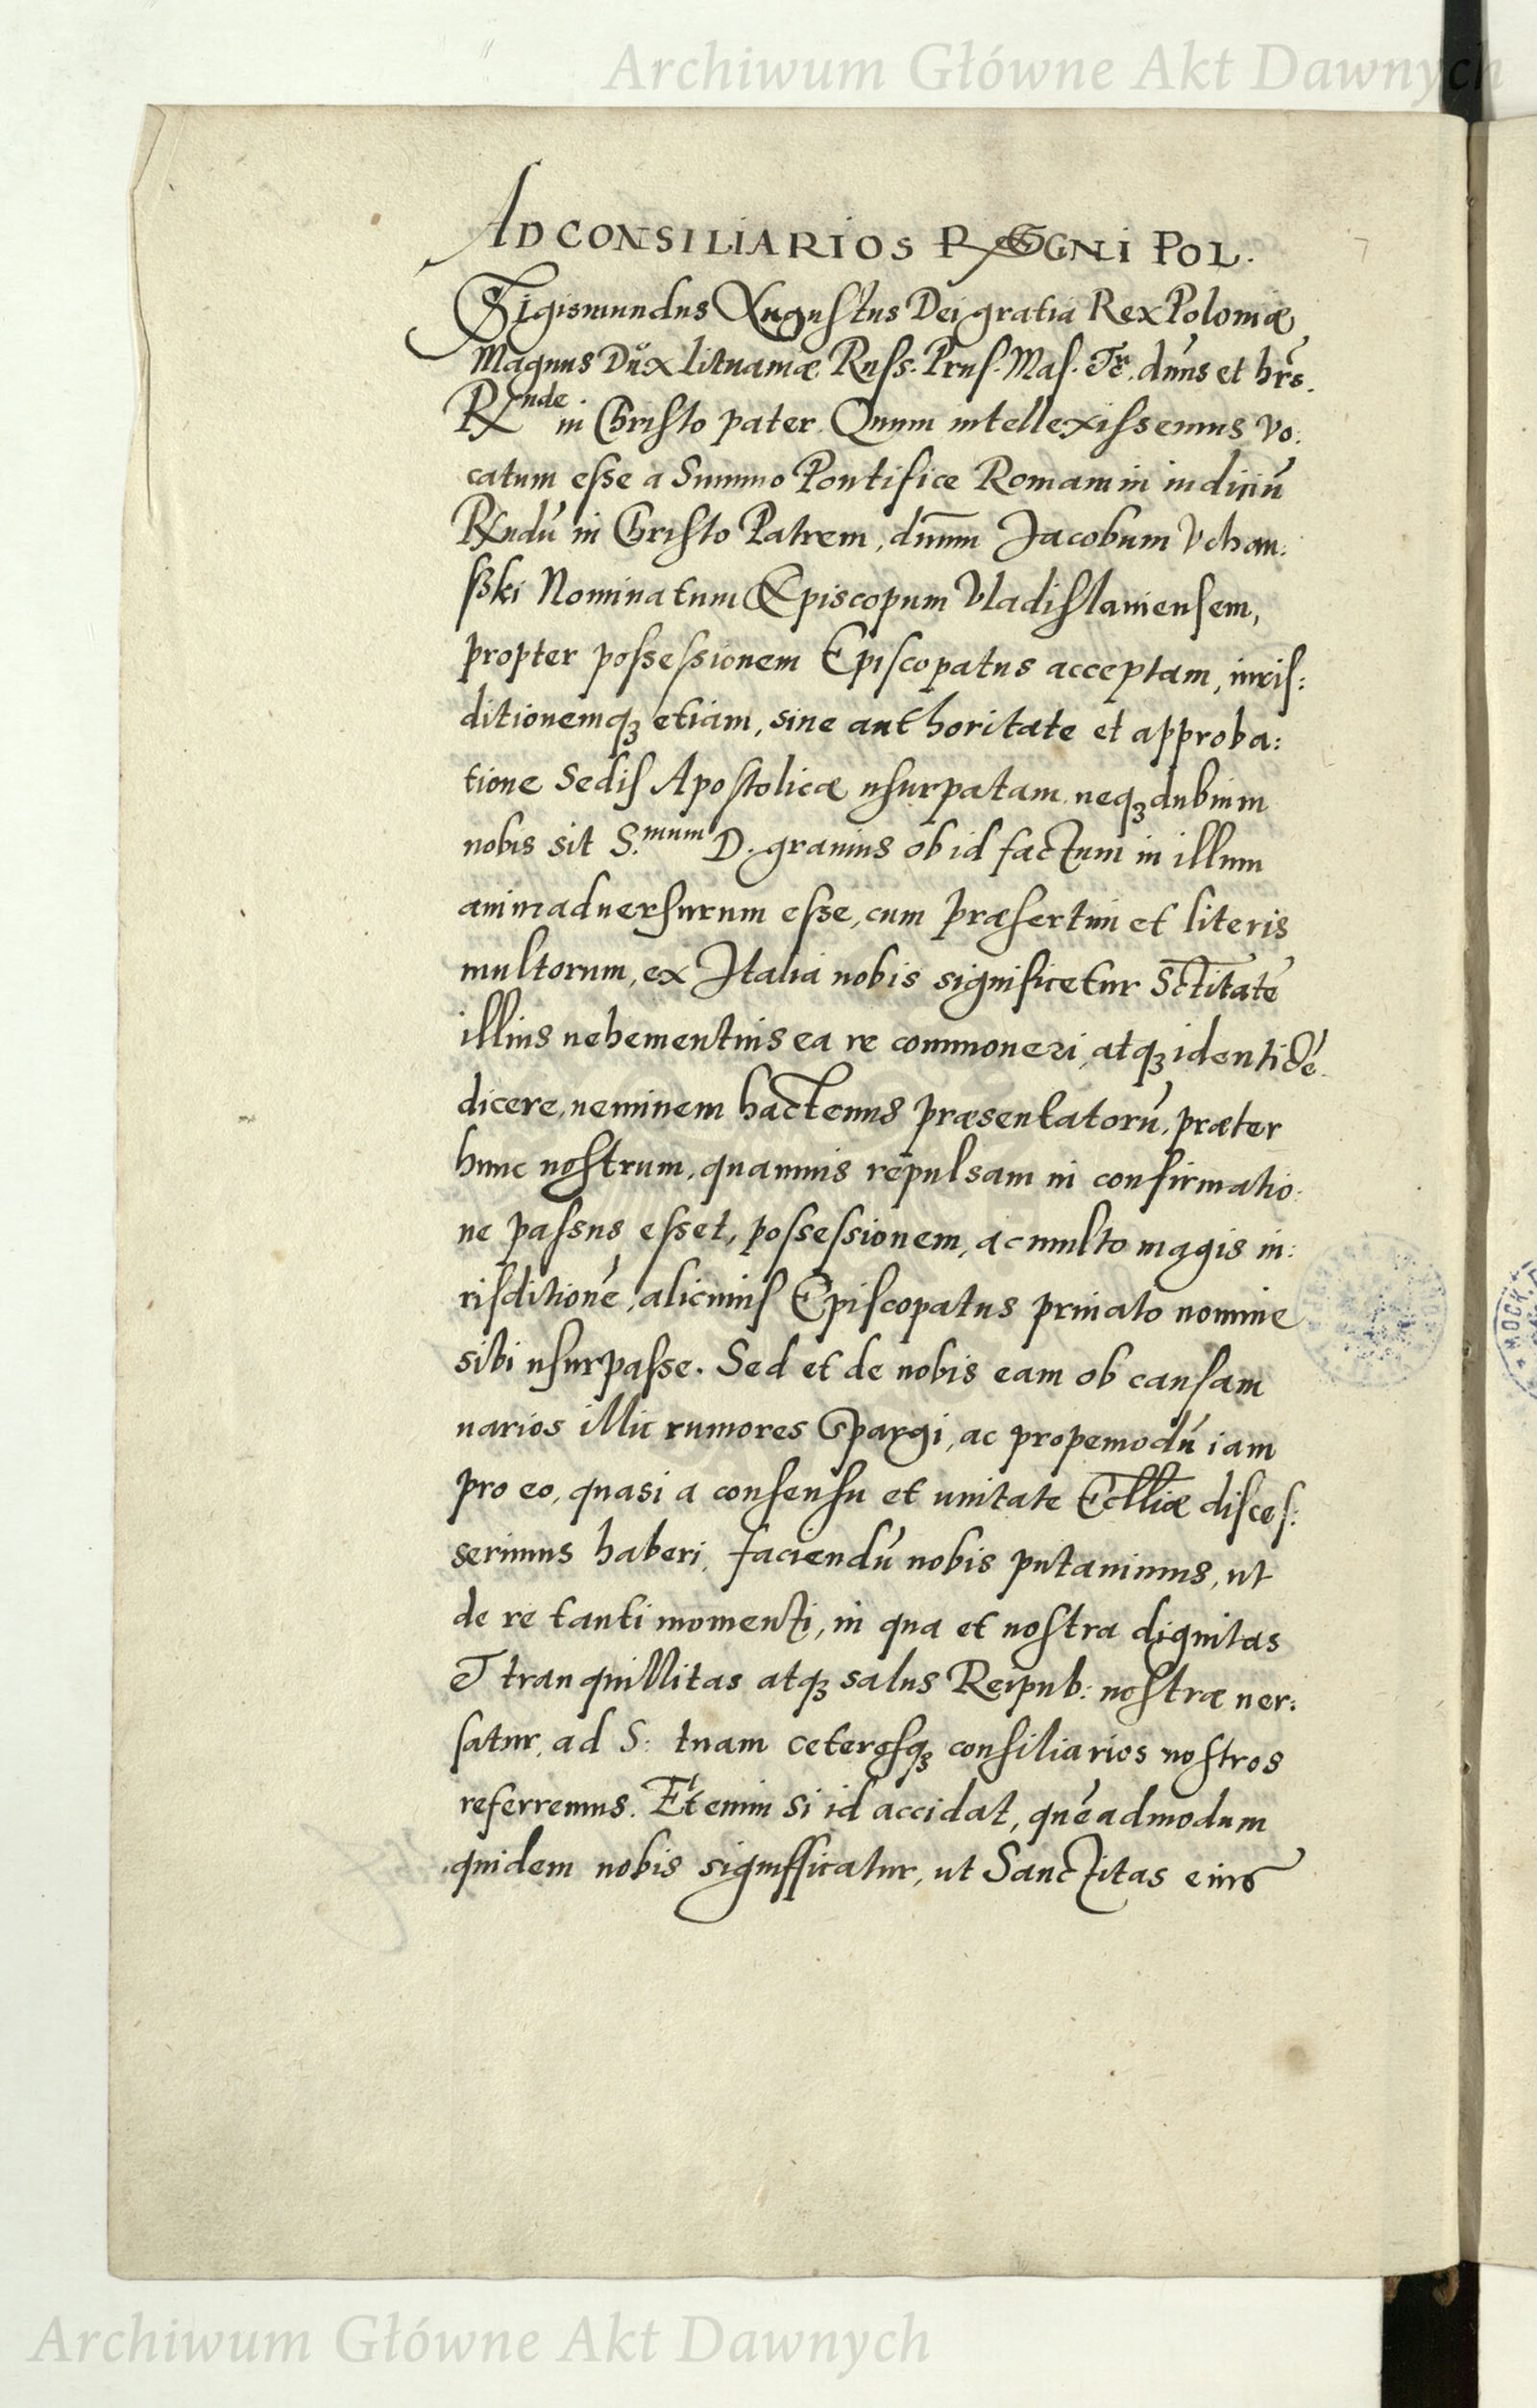 Archiwum Główne Akt Dawnych
AD CONSILIARIOS REGNI POL.
Sigismundus Augustus Dei gratia Rex Poloniæ
Magnus Dux lituaniæ Russ. Prus. Mas. etc. dūns et hrs.
Rnde in Christo pater. Quum intellexissemus vo:
catum esse a Summo Pontifice Romam in iudiciū
Rndū in Christo Patrem, dnum Jacobum Vchan:
sski Nominatum Episcopum Vladislauiensem,
propter possessionem Episcopatus acceptam, iuris:
ditionemqꝫ etiam, sine authoritate et approba:
tione Sedis Apostolicæ usurpatam neqꝫ dubium
nobis sit S.mum D. grauius ob id factum in illum
animaduersurum esse, cum præsertim et literis
multorum, ex Italia nobis significetur Sctitatē
illius uehementius ea re commoueri, atqꝫ identidē
dicere, neminem hactenus præsentatorū, præter
hunc nostrum, quamuis repulsam in confirmatio:
ne passus esset, possessionem, ac multo magis iu:
risditionē, alicuius Episcopatus priuato nomine
sibi usurpasse. Sed et de nobis eam ob causam
uarios illic rumores spargi, ac propemodū iam
pro eo, quasi a consensu et unitate Ecclliæ disces:
serimus haberi, faciendū nobis putauimus, ut
de re tanti momenti, in qua et nostra dignitas
et tranquillitas atqꝫ salus Reipub: nostræ uer:
satur, ad S: tuam ceterosqꝫ consiliarios nostros
referremus. Etenim si id accidat, quēadmodum
quidem nobis significatur, ut Sanctitas eius
МОСК
Archiwum Główne Akt Dawnych